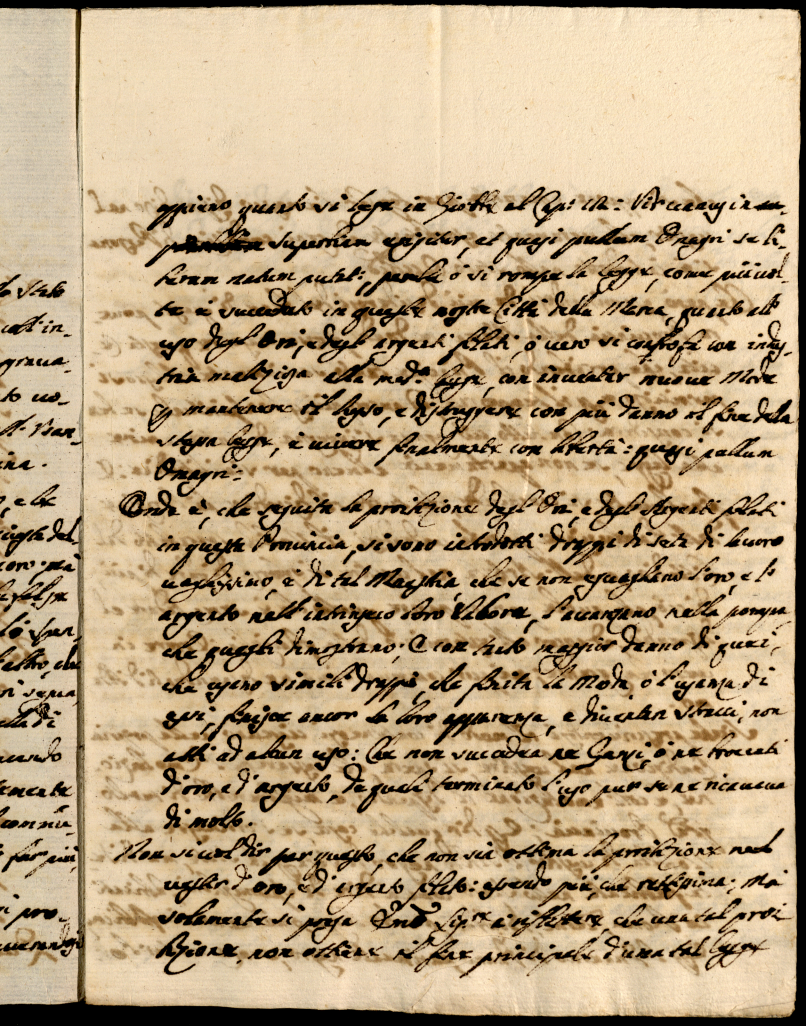 lo stato
grava-
ina.
appieno quanto si legge in Giobbe al Cap: 11: Vir vanus in su-
superbiam erigitur, et quasi pullum Onagri se li-
berum natum putat; perche ò si rompe la legge, come più vol-
te è succeduto in queste nostre Città della Marca, quanto all'
uso degl'Ori, e degl'argenti filati, ò vero si contrafà con indus-
tria maliziosa alla med.ª legge, con inventar nuove Mode
p mantenere il lusso, e distruggere con più danno il fine della
stessa legge, è vivere finalmente con libertà: quasi pullum
Onagri:
Onde è, che seguita la proibizione degl'Ori, e degl'Argenti filati
in questa Provincia, si sono introdotti drappi di seta di lavoro
vaghissimo, è di tal Maestria, che se non eguagliano l'oro, e l'
argento nell'intrinseco loro Valore, l'avanzano nella pompa,
che quegli dimostrano; E con tanto maggior danno di quei,
che usano simili drappi, che finita la Moda ò l'usanza di
essi, finisce ancor la loro apparenza, e diventan stracci, non
atti ad alcun uso: Che non succedea ne ò ne broccati
d'oro, e d'argento, de quali terminato l'uso pur se ne ricavava
di molto.
Non si vol dir per questo, che non sia ottima la proibizione nel
vestir d'oro, è d'argento filato: essendo più, che rettissima; mà
solamente si prega à riflettere, che una tal proi
bizione, non ottiene il fine principale d'una tal legge